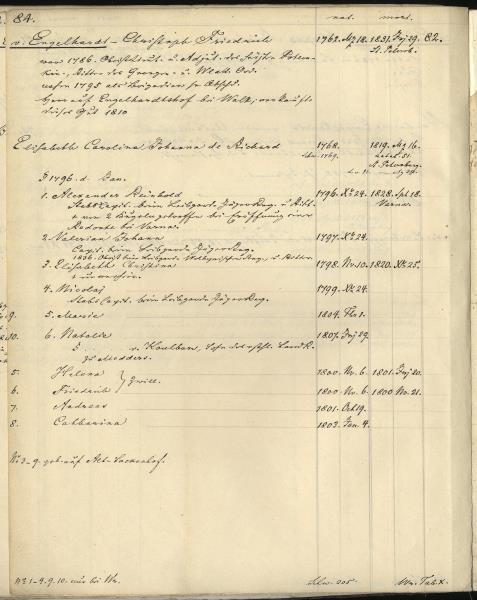 84.
nat. mort.
v. Engelhardt - Christoph Friedrich 1762. Mz 18. 1831. Juj 29. 82.
St. Petersb.
war 1786. Obristleut. u. Adjut. des Fürsten Potem-
kin, Ritter des Georgen- u. Wlad. Ord.
nahm 1795 als Brigadier sr Absch.
Herr auf Engelhardtshof bei Walk, verkaufte
dieses Gut 1810
Elisabeth Carolina Johanna de Richard 1768. 1819. Mz 16.
1769. aetat. 51.
St. Petersburg.
1796. d. Jan.
1. Alexander Reinhold 1796. Xbr 24. 1828. Spt 18.
Stabscapit. beim Leibgarde Jäger Reg. u. Ritt. Varna.
+ von 2 Kugeln getroffen bei Eröffnung einer
Redoute bei Varna.
2. Valerian Johann 1797. Xbr 24.
Capit. beim Leibgarde Jäger Reg.
1836. Obrist beim Leibgarde Wolhynischen Reg. u. Ritter.
3. Elisabeth Christina 1798. Nv. 10. 1820. Xbr 25.
+ unverehl.
4. Nicolas 1799. Xbr 24.
Stabs Capit. beim Leibgarde Jäger Reg.
9. 5. Marie 1804. Fbr 1.
10. 6. Natalie 1807. Juj 29.
v. Koulban,
zu Modders.
5. Helena 1800. Nv. 6. 1801. Juj 20.
Zwill.
6. Friedrich 1800. Nv. 6. 1800 Nv. 21.
7. Andreas 1801. Oct 19.
8. Catharina 1803. Jan. 4.
No 3-9. geb. auf Alt-
No 1-4. 9. 10. nur bei Wr.
205.
Wr. Tab. X.